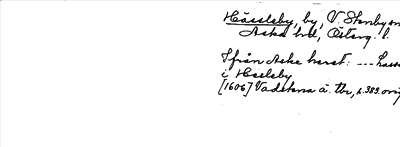 Hässleby, by, V. Stenby sn
Aska hd, Österg. l.
Ifrån Aske herat: --- Lasse
i Hasleby
[1606] Vadstena ä. tb, s. 389. orig